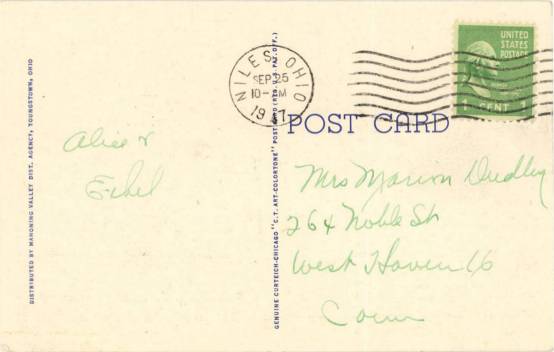 DISTRIBUTED BY MAHONING VALLEY DIST. AGENCY, YOUNGSTOWN, OHIO
Alice &
Ethel
NILES, OHIO
SEP 25
10- M
1947
GENUINE CURTEICH-CHICAGO "C.T. ART-COLORTONE" POST CARD (REG. U.S. PAT. OFF.)
UNITED
STATES
POSTAGE
1 CENT 1
POST CARD
Mrs Marion Dudley
264 Noble St
West Haven 16
Conn